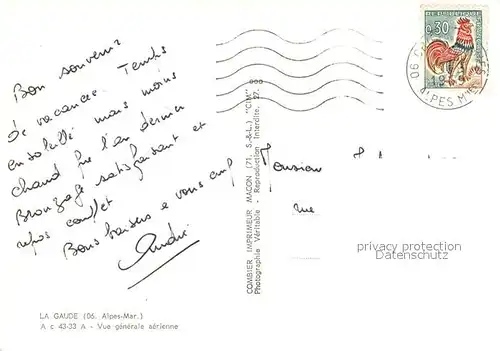 Bon souvenir
de vacances. Temps
ensoleillé mais moins
chaud que l'an dernier
Bronzage satisfaisant et
repos complet
Bons baisers à vous
André
LA GAUDE (06. Alpes-Mar.)
A c 43-33 A - Vue générale aérienne
COMBIER IMPRIMEUR MACON (71, S.-&-L.) "CIM"
Photographie Véritable - Reproduction Interdite.
0,30
06
ALPES Mmes
Monsieur
rue
privacy protection
Datenschutz